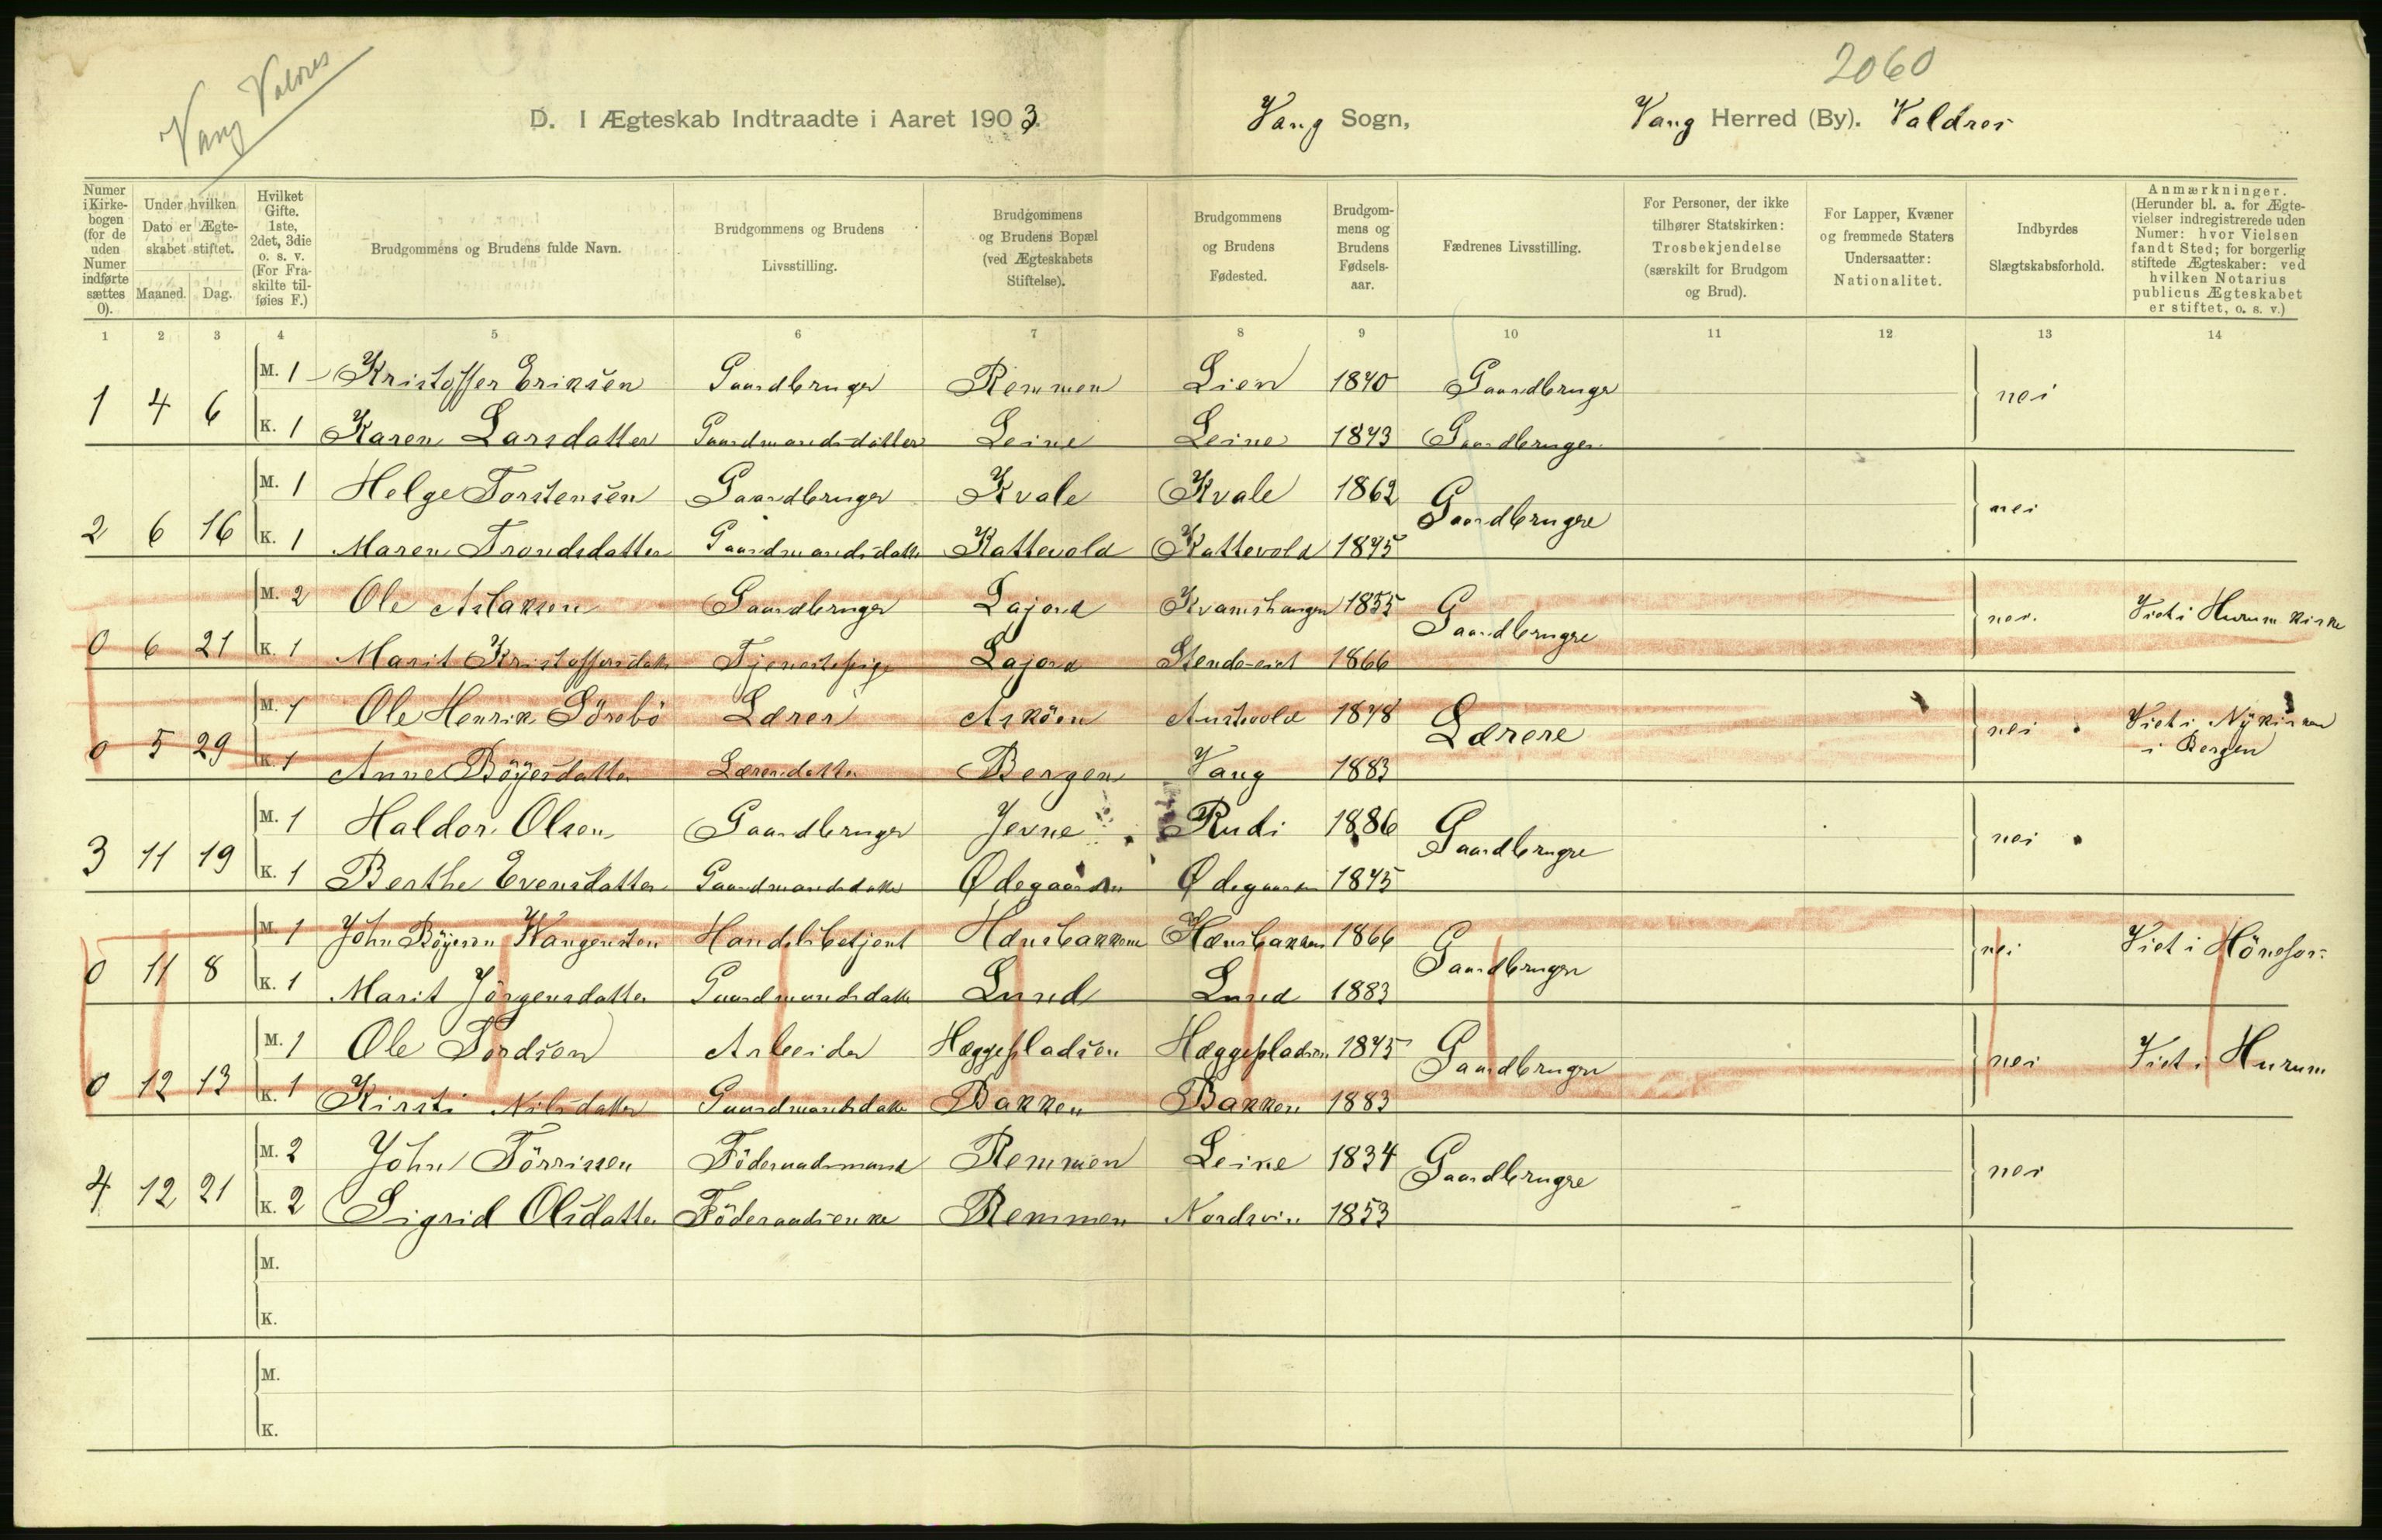 2060
Vang Valdres
D. I Ægteskab Indtraadte i Aaret 1903. Vang Sogn, Vang Herred (By). Valdres
Numer i Kirkebogen (for de uden Numer indførte sættes 0).
Under hvilken Dato er Ægteskabet stiftet.
Maaned. Dag.
Hvilket Gifte. 1ste, 2det, 3die o. s. v. (For Fraskilte tilføies F.)
Brudgommens og Brudens fulde Navn.
Brudgommens og Brudens Livsstilling.
Brudgommens og Brudens Bopæl (ved Ægteskabets Stiftelse).
Brudgommens og Brudens Fødested.
Brudgommens og Brudens Fødselsaar.
Fædrenes Livsstilling.
For Personer, der ikke tilhører Statskirken: Trosbekjendelse (særskilt for Brudgom og Brud).
For Lapper, Kvæner og fremmede Staters Undersaatter: Nationalitet.
Indbyrdes Slægtskabsforhold.
Anmærkninger. (Herunder bl. a. for Ægtevielser indregistrerede uden Numer: hvor Vielsen fandt Sted; for borgerlig stiftede Ægteskaber: ved hvilken Notarius publicus Ægteskabet er stiftet, o. s. v.)
1 2 3 4 5 6 7 8 9 10 11 12 13 14
M. 1 Kristoffer Eriksen Gaardbruger Remmen Lien 1840 Gaardbruger
1 4 6 nei
K. 1 Karen Larsdatter Gaardmandsdatter Leine Leine 1843 Gaardbruger
M. 1 Helge Torstensen Gaardbruger Kvale Kvale 1862 Gaardbrugre
2 6 16 nei
K. 1 Maren Trondsdatter Gaardmandsdatter Kattevold Kattevold 1875
M. 2 Ole Aslaksen Gaardbruger Lajord Kvamshaugen 1855 Gaardbrugre
0 6 21 nei. Viet i Hurum kirke
K. 1 Marit Kristoffersdatt Tjenestepige Lajord 1866
M. 1 Ole Henrik Sörebö Lærer Asköen Austevold 1878 Lærere
0 5 29 nei Viet i Nykirken i Bergen
K. 1 Anne Böyesdatter Lærerdatter Bergen Vang 1883
M. 1 Haldor Olsen Gaardbruger Jevne Rudi 1886 Gaardbrugre
3 11 19 nei
K. 1 Berthe Evensdatter Gaardmandsdatter Ødegaarden Ødegaarden 1875
M. 1 John Böyesen Wangensten Handelsbetjent Hænsbakken Hænsbakken 1866 Gaardbruger
0 11 8 nei Viet i Hönefos
K. 1 Marit Jörgensdatter Gaardmandsdatt Lund Lund 1883
M. 1 Ole Tordsen Arbeider Hæggepladsen Hæggepladsen 1875 Gaardbruger
0 12 13 nei Viet i Hurum
K. 1 Kirsti Nilsdatter Gaardmandsdatt Bakken Bakken 1883
M. 2 John Törrissen Föderaadsmand Remmen Leine 1834 Gaardbrugre
4 12 21 nei
K. 2 Sigrid Olsdatter Föderaadsenke Remmen Nordsvin 1853
M.
K.
M.
K.